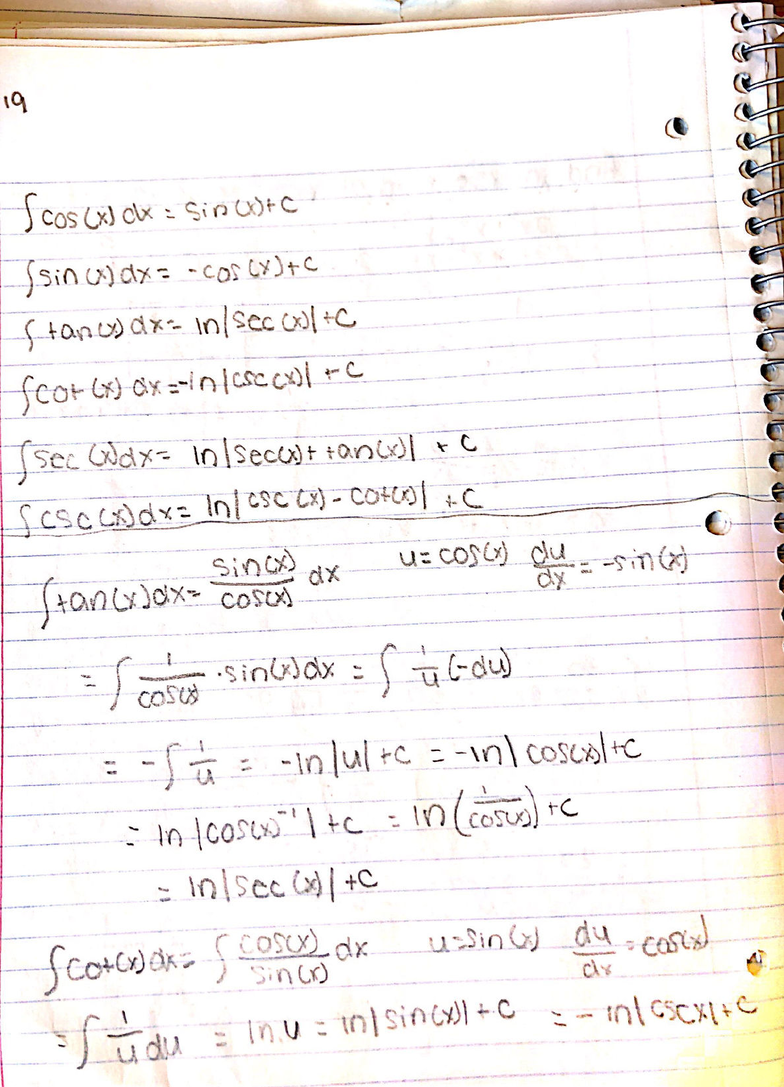 19
∫cos(x)dx = sin(x)+C
∫sin(x)dx = -cos(x)+C
∫tan(x)dx = ln|sec(x)|+C
∫cot(x)dx = -ln|csc(x)|+C
∫sec(x)dx = ln|sec(x)+tan(x)| + C
∫csc(x)dx = ln|csc(x)-cot(x)| + C
∫tan(x)dx = sin(x)/cos(x) dx u=cos(x) du/dx = -sin(x)
= ∫ 1/cos(x) · sin(x)dx = ∫ 1/u (-du)
= -∫ 1/u = -ln|u|+C = -ln|cos(x)|+C
= ln|cos(x)⁻¹|+C = ln(1/cos(x))+C
= ln|sec(x)|+C
∫cot(x)dx = ∫ cos(x)/sin(x) dx u=sin(x) du/dx = cos(x)
= ∫ 1/u du = ln u = ln|sin(x)|+C = -ln|cscx|+C